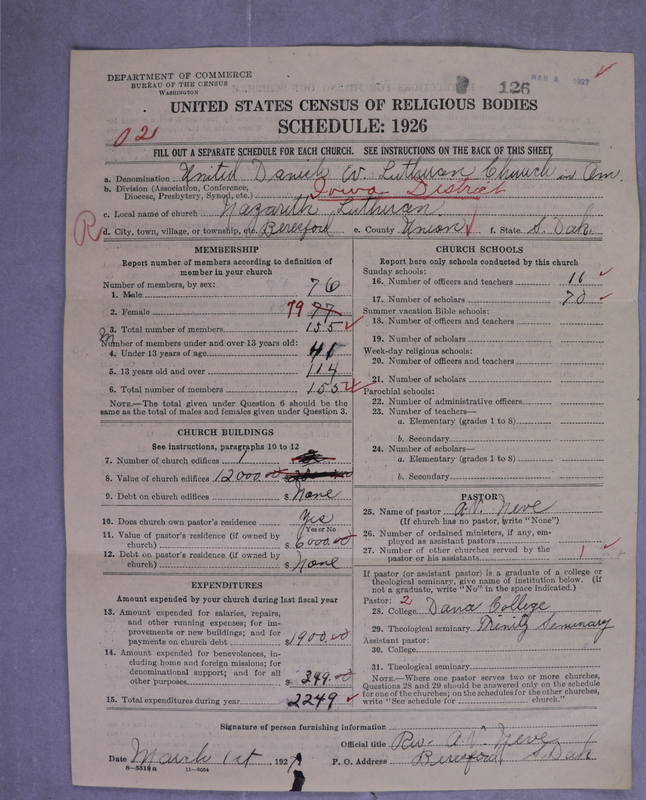 DEPARTMENT OF COMMERCE
BUREAU OF THE CENSUS
WASHINGTON
126
MAR 4 1927
UNITED STATES CENSUS OF RELIGIOUS BODIES
SCHEDULE: 1926
021
FILL OUT A SEPARATE SCHEDULE FOR EACH CHURCH. SEE INSTRUCTIONS ON THE BACK OF THIS SHEET
a. Denomination United Danish Ev. Lutheran Church in Am.
b. Division (Association, Conference, Diocese, Presbytery, Synod, etc.) Iowa District
c. Local name of church Nazareth Lutheran
R
d. City, town, village, or township, etc. Beresford e. County Union f. State S. Dak.
MEMBERSHIP
Report number of members according to definition of
member in your church
Number of members, by sex:
1. Male 76
2. Female 79 77
3. Total number of members 155
Number of members under and over 13 years old:
4. Under 13 years of age 41
5. 13 years old and over 114
6. Total number of members 155
NOTE.—The total given under Question 6 should be the
same as the total of males and females given under Question 3.
CHURCH BUILDINGS
See instructions, paragraphs 10 to 12
7. Number of church edifices 1
8. Value of church edifices 12000.00
9. Debt on church edifices $ None
10. Does church own pastor's residence Yes
Yes or No
11. Value of pastor's residence (if owned by
church) $ 6000.00
12. Debt on pastor's residence (if owned by
church) $ None
EXPENDITURES
Amount expended by your church during last fiscal year
13. Amount expended for salaries, repairs,
and other running expenses; for im-
provements or new buildings; and for
payments on church debt $ 1900.00
14. Amount expended for benevolences, in-
cluding home and foreign missions; for
denominational support; and for all
other purposes $ 349.00
15. Total expenditures during year 2249
CHURCH SCHOOLS
Report here only schools conducted by this church
Sunday schools:
16. Number of officers and teachers 11
17. Number of scholars 70
Summer vacation Bible schools:
18. Number of officers and teachers
19. Number of scholars
Week-day religious schools:
20. Number of officers and teachers
21. Number of scholars
Parochial schools:
22. Number of administrative officers
23. Number of teachers—
a. Elementary (grades 1 to 8)
b. Secondary
24. Number of scholars—
a. Elementary (grades 1 to 8)
b. Secondary
PASTOR
25. Name of pastor A.V. Neve
(If church has no pastor, write "None")
26. Number of ordained ministers, if any, em-
ployed as assistant pastors
27. Number of other churches served by the
pastor or his assistants 1
If pastor (or assistant pastor) is a graduate of a college or
theological seminary, give name of institution below. (If
not a graduate, write "No" in the space indicated.)
Pastor: 2
28. College Dana College
29. Theological seminary Trinity Seminary
Assistant pastor:
30. College
31. Theological seminary
NOTE.—Where one pastor serves two or more churches,
Questions 28 and 29 should be answered only on the schedule
for one of the churches; on the schedules for the other churches,
write "See schedule for church."
Signature of person furnishing information
Official title Rev. A.V. Neve
Date March 1st, 1927 P. O. Address Beresford S. Dak
8—5518a 11—9054